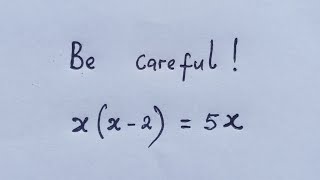 Be careful!
x(x-2) = 5x